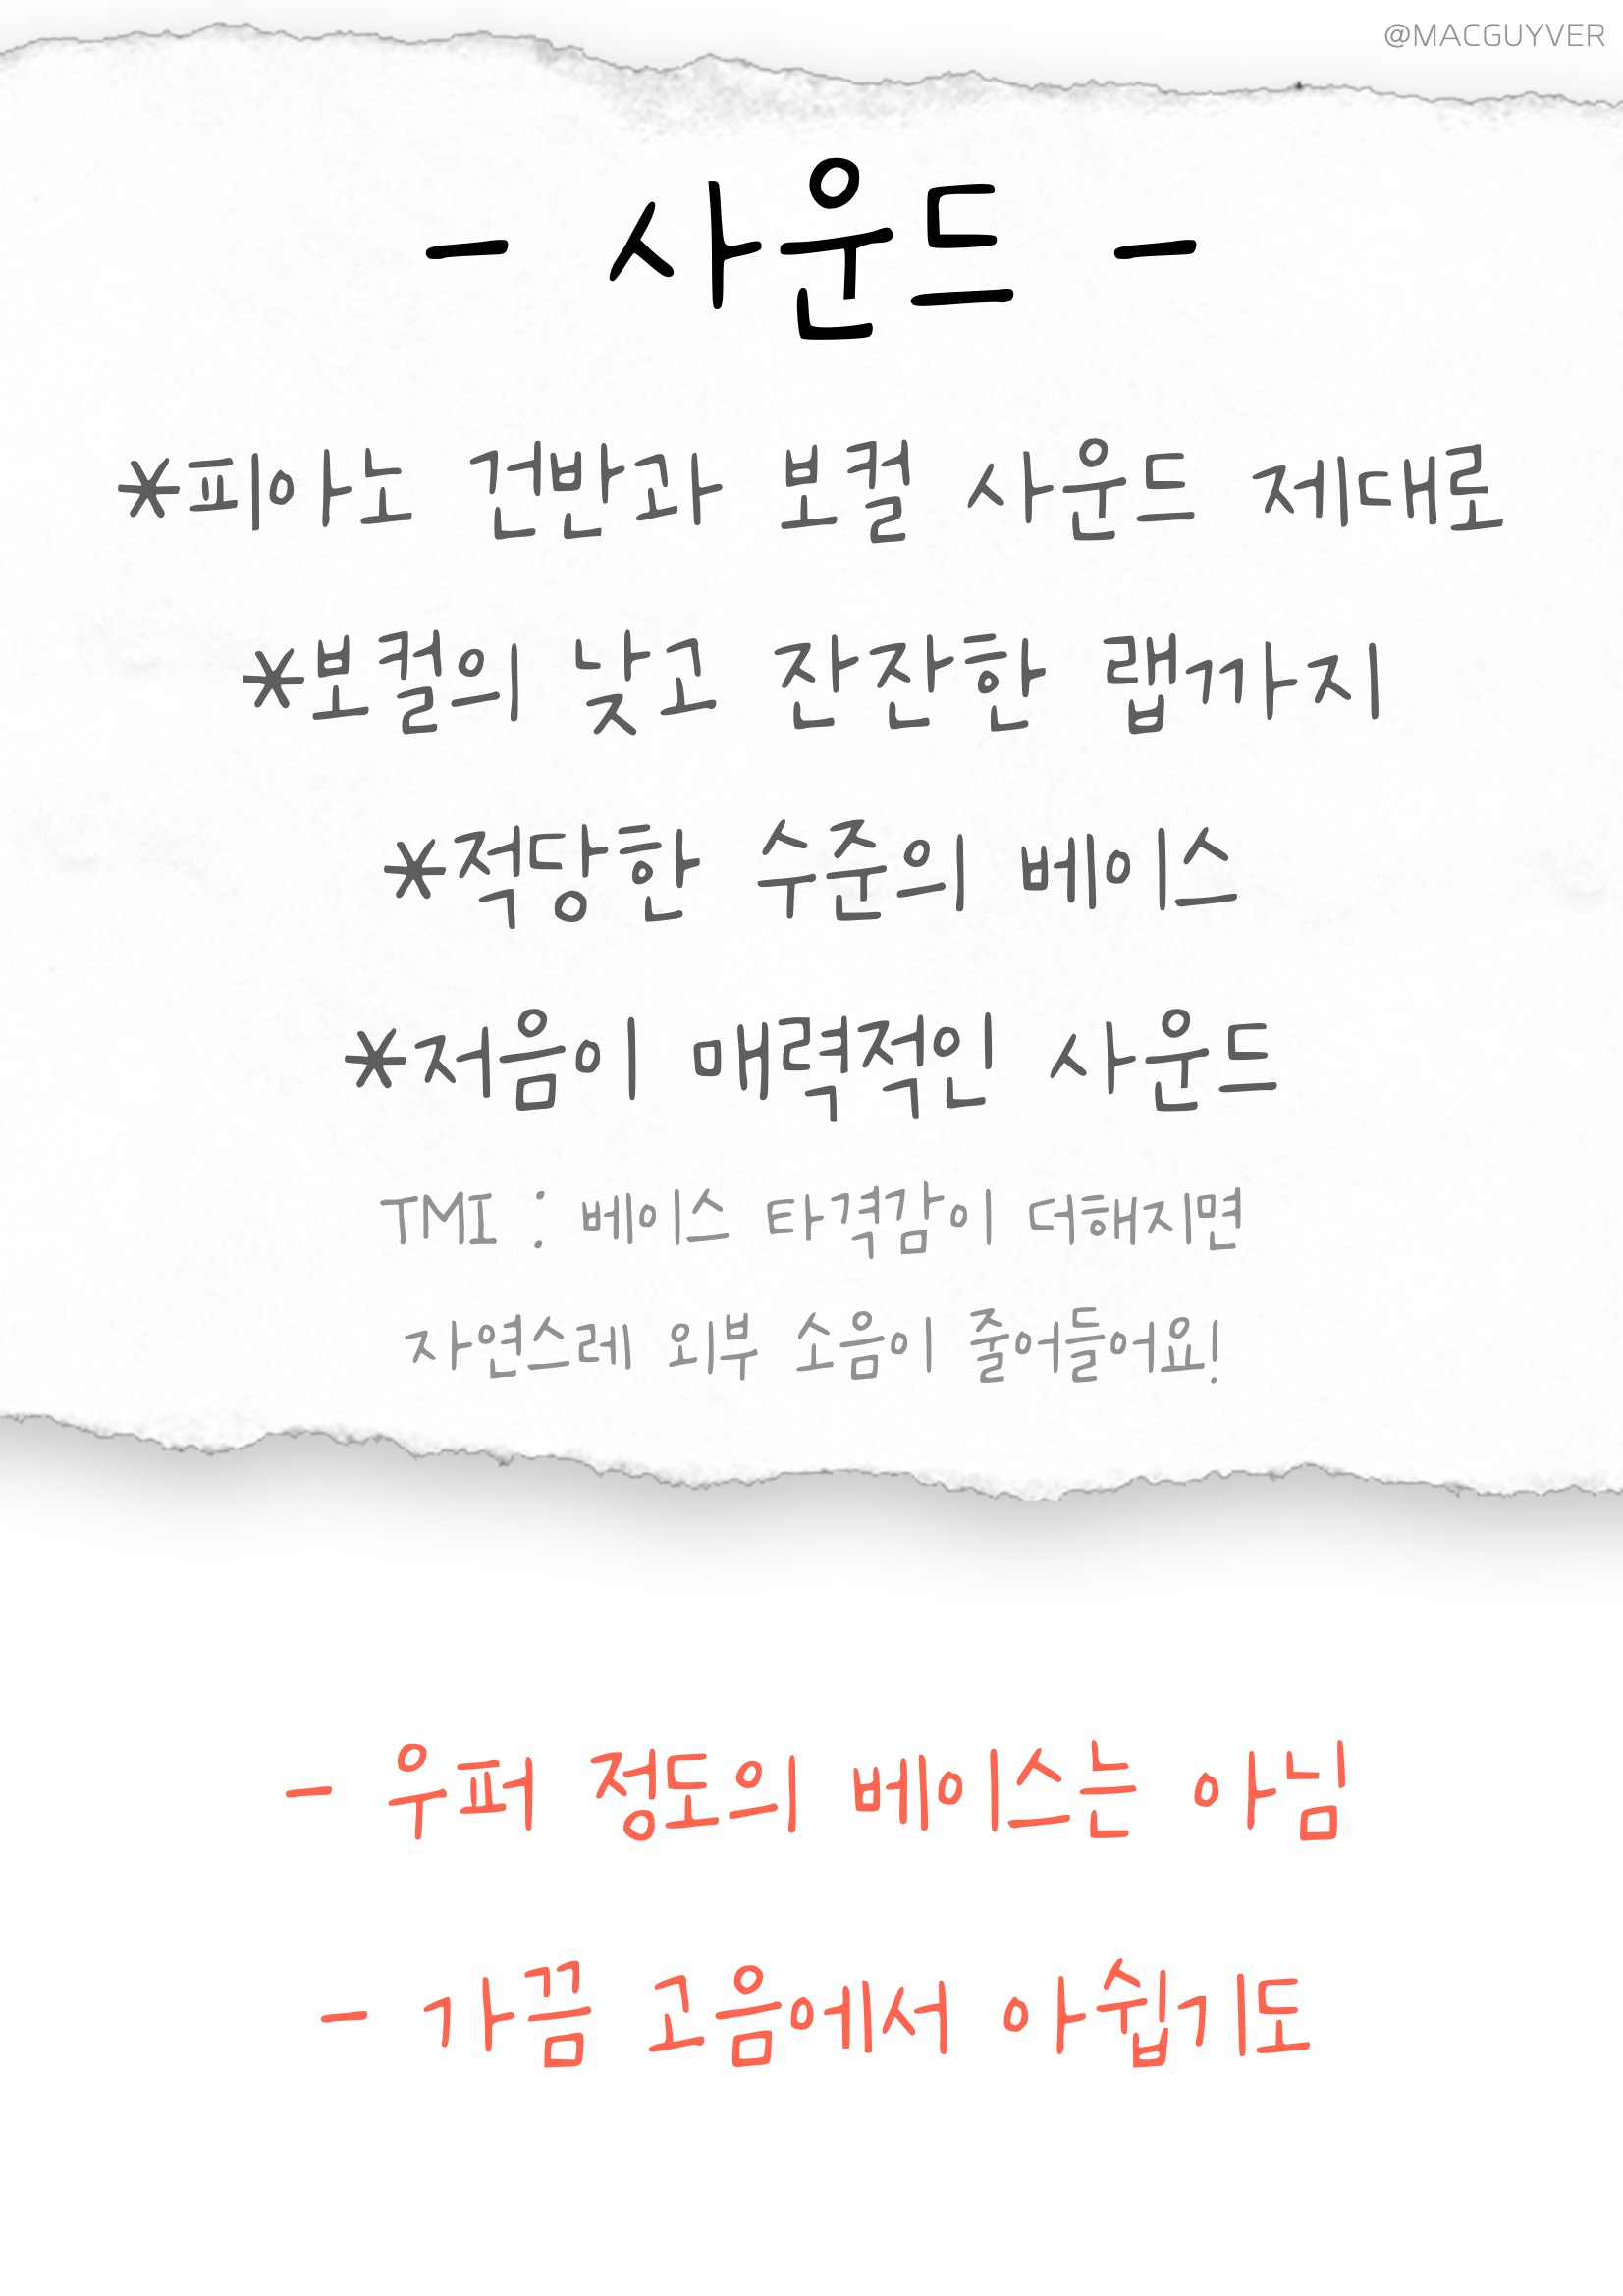 @MACGUYVER
- 사운드 -
*피아노 건반과 보컬 사운드 제대로
*보컬의 낮고 잔잔한 랩까지
*적당한 수준의 베이스
*저음이 매력적인 사운드
TMI : 베이스 타격감이 더해지면
자연스레 외부 소음이 줄어들어요!
- 우퍼 정도의 베이스는 아님
- 가끔 고음에서 아쉽기도